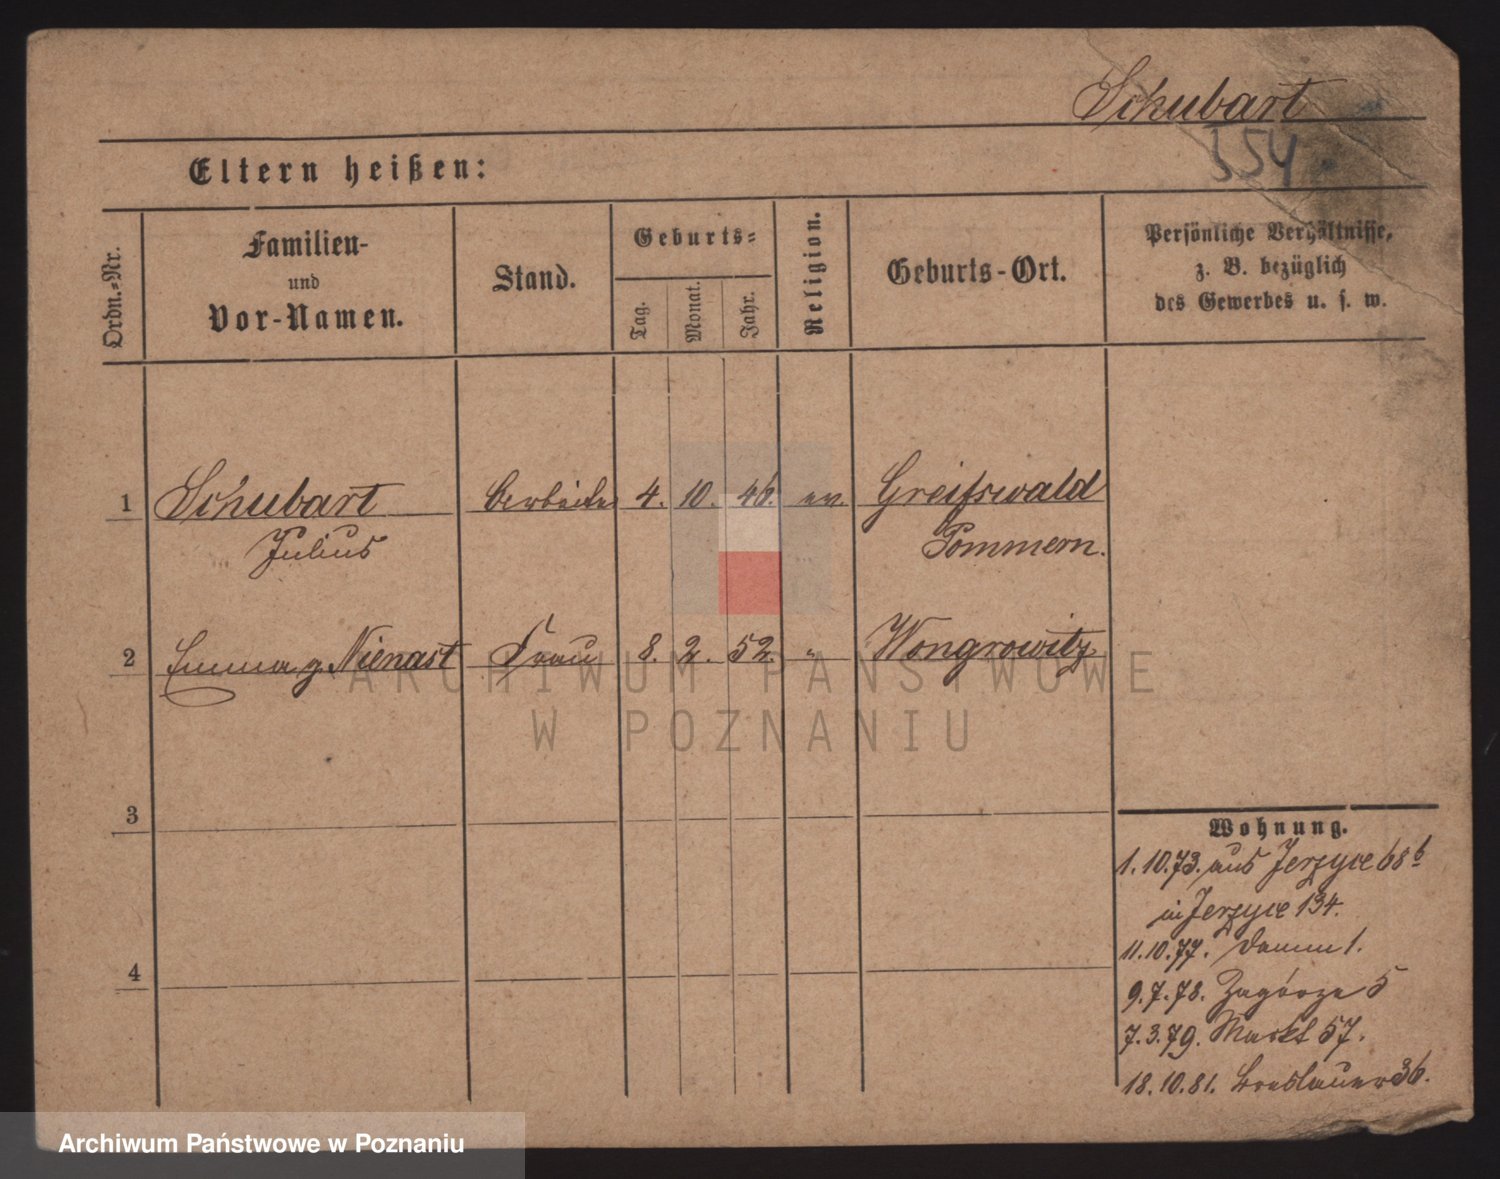 Schubart
354
Eltern heißen:
Ordn.-Nr.
Familien-
und
Vor-Namen.
Stand.
Geburts-
Tag.
Monat.
Jahr.
Religion.
Geburts-Ort.
Persönliche Verhältnisse,
z. B. bezüglich
des Gewerbes u. s. w.
1 Schubart Arbeiter 4. 10. 46. ev. Greifswald
Julius Pommern.
2 Emma g. Nienast Frau 8. 2. 52. " Wongrowitz.
3
4
Wohnung.
1. 10. 73. aus Jerzyce 68b
in Jerzyce 134.
11. 10. 77. Damm 1.
9. 7. 78. Zagórze 5
7. 3. 79. Markt 57.
18. 10. 81. Breslauer 36.
ARCHIWUM PAŃSTWOWE
W POZNANIU
Archiwum Państwowe w Poznaniu